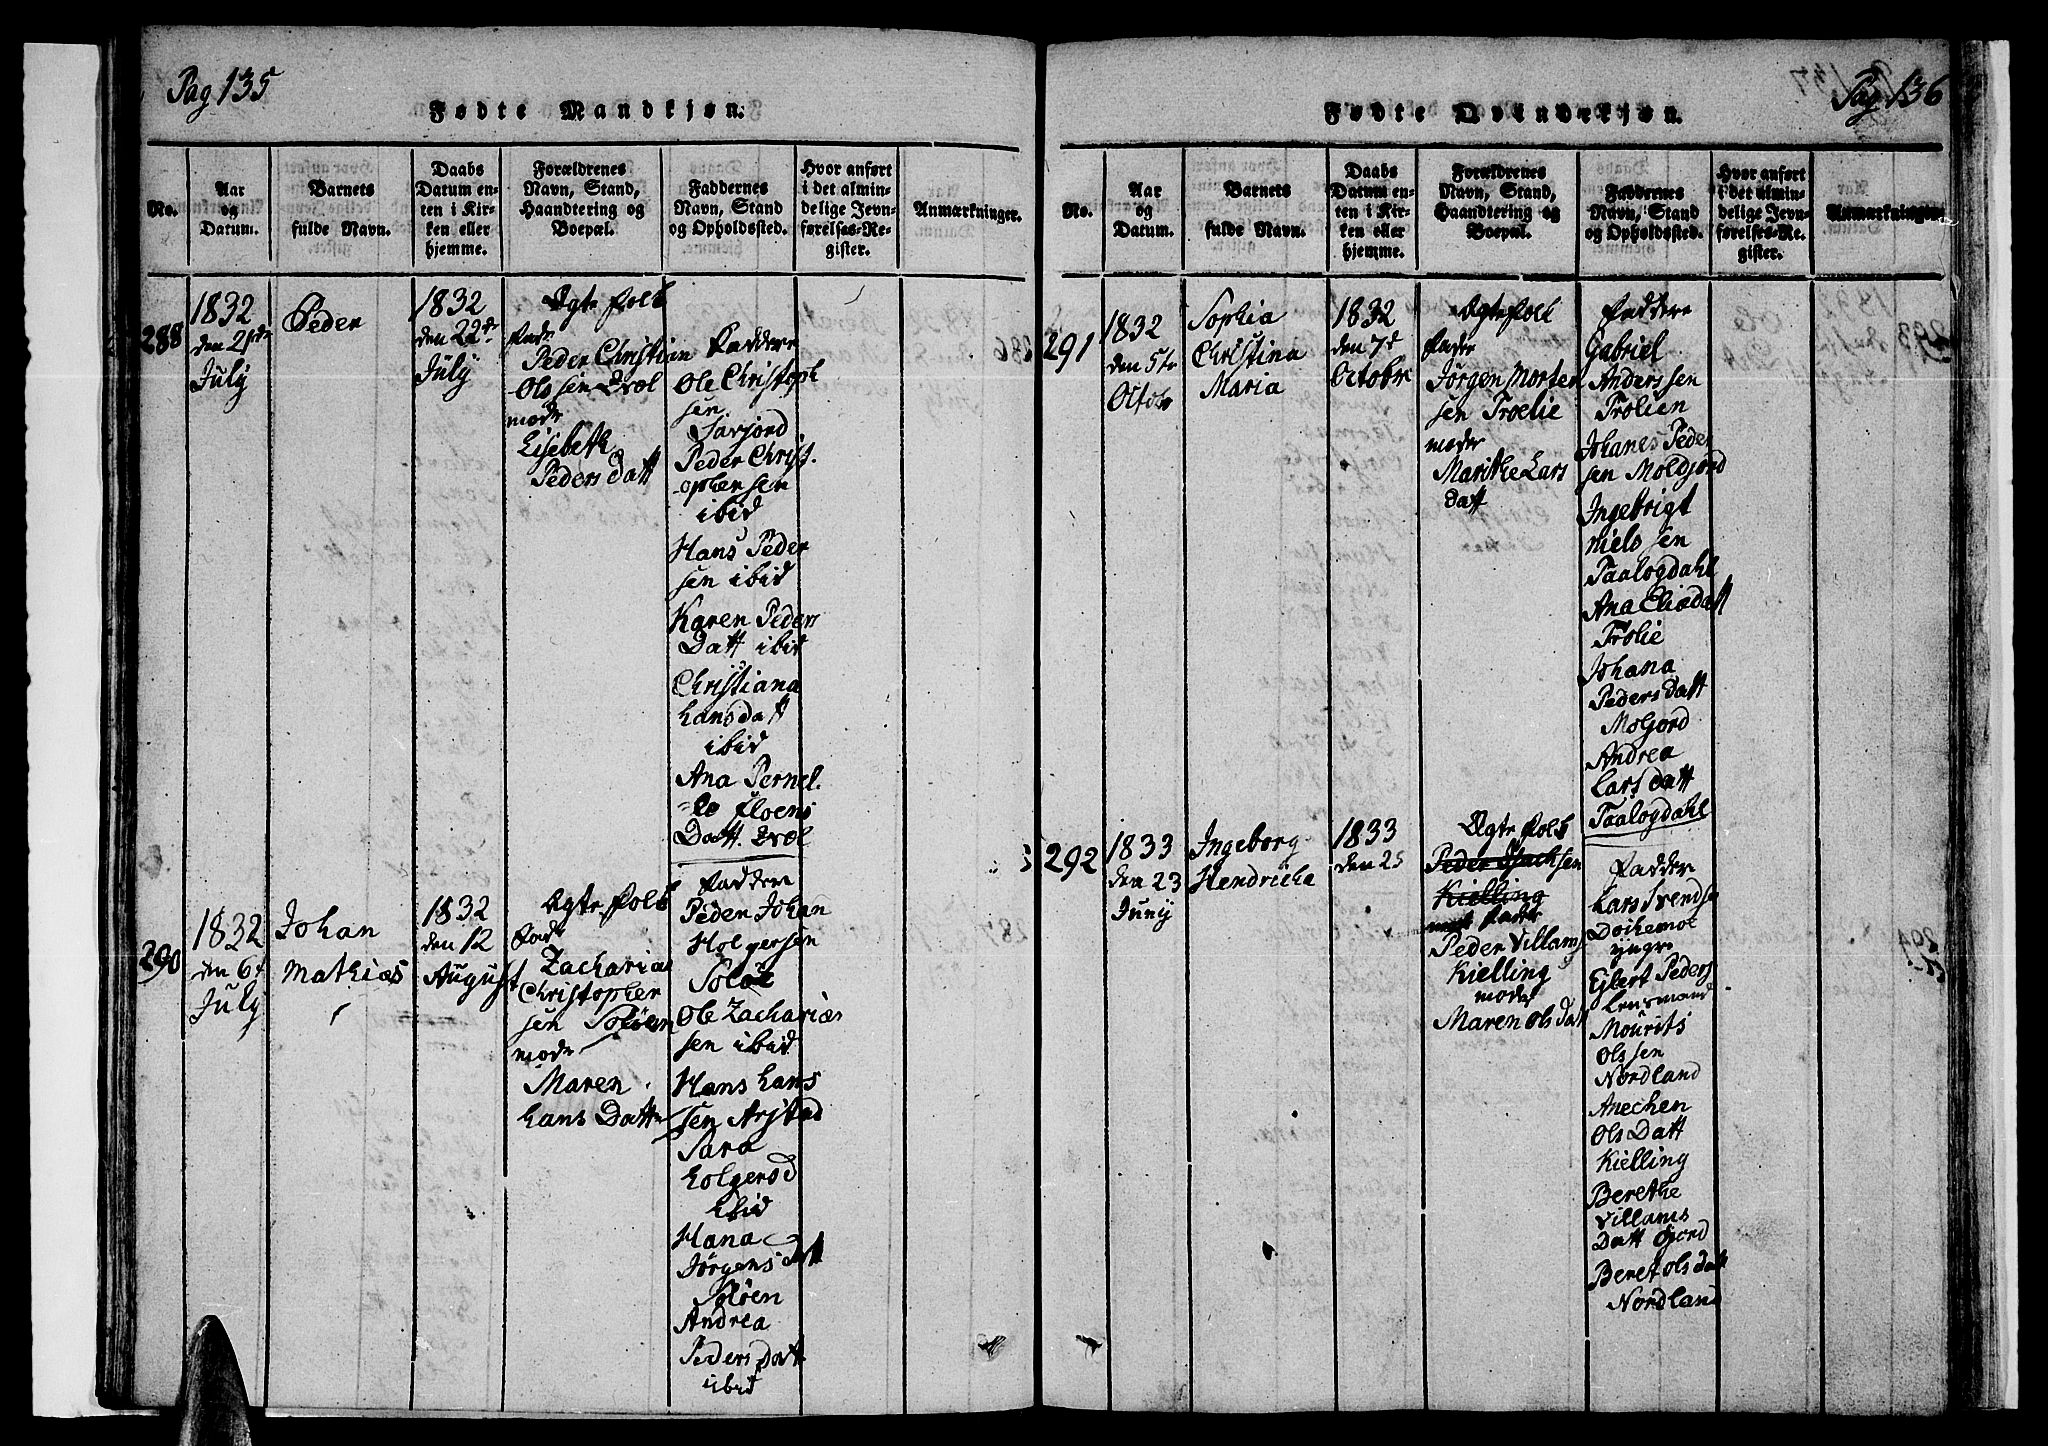 Pag 135
Fødte Mandkjøn.
No.
Aar
og
Datum.
Barnets
fulde Navn.
Daabs
Datum en-
ten i Kir-
ken eller
hjemme.
Forældrenes
Navn, Stand,
Haandtering og
Boepæl.
Faddernes
Navn, Stand
og Opholdssted.
Hvor anført
i det almin-
delige Jevn-
førelses-Re-
gister.
Anmærkninger.
288
1832
den 21de
July
Peder
1832
den 22de
July
Ægte folk
fader
Peder Christian
Olssen Evæl
mode
Lisebeth
Peders Datt
Faddere
Ole Christoph
sen
Sarjord
Peder Christ.
ophersen
ibid
Hans Peder
sen ibid
Karen Peders
Datt ibid
Christiana
hansdatt
ibid
Ana Pernel.
=le Cloens
Datt. Evæl
290
1832
den 6t
July
Johan
Mathias
1832
den 12
August
Ægte folk
fader
Zacharias
Christopher
sen Soløen
mode
Maren
Hans Datt
Faddere
Peder Johan
Holgersen
Soløe
Ole Zacharias
sen ibid
Hans hans
sen Arstad
Sara
holgersd
ibid
Hana
Jørgens Datt
Soløen
Andrea
Pedersdatt
ibid
Pag 136
Fødte Qvindekjøn.
No.
Aar
og
Datum.
Barnets
fulde Navn.
Daabs
Datum en-
ten i Kir-
ken eller
hjemme.
Forældrenes
Navn, Stand,
Haandtering og
Boepæl.
Faddernes
Navn, Stand
og Opholdssted.
Hvor anført
i det almin-
delige Jevn-
førelses-Re-
gister.
Anmærkninger.
291
1832
den 5te
Octobr
Sophia
Christina
Maria
1832
den 7d
Octobr
Ægte folk
fader
Jørgen Morten
sen Troelie
moder
Marithe Lars
datt
Faddere
Gabriel
Anderssen
Trolien
Johanes Peder
sen Moldjord
Ingebrigt
Nielssen
Taalogdahl
Ana Eliædatt
Trolie
Johana
Pedersdatt
Molgjord
Andrea
Larsdatt
Taalogdahl
292
1833
den 23
Juny
Ingeborg
Hendricha
1833
den 25
Ægte folk
Peder Isachsen
Kielling
fader
Peder Villams
Kielling
moder
Maren Olsdatt
Faddere
Lars Svends
Dochemoe
yngre
Ejlert Peders
Lensmand
Mourits
Olssen
Nordland
Anechen
Ols Datt
Kielling
Berethe
Villams
Datt Gjord
Beret olsdatt
Nordland